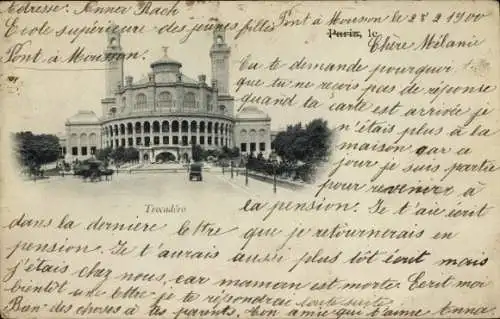 Adresse: Anna Bach
Ecole supérieure des jeunes filles
Pont à Mousson
Pont à Mousson le 28 2 1900
Paris, le
Chère Mélanie
Tu te demande pourquoi
que tu ne reçois pas de réponse
Quand la carte est arrivée je
n'étais plus à la
maison car ce
jour je suis partie
pour revenir à
la pension. Je t'ai écrit
Trocadéro
dans la dernière lettre que je retournerais en
pension. Je t'aurais aussi plus tôt écrit mais
j'étais chez nous, car maman est morte. Ecrit moi
bientôt une lettre je te répondrai toute suite
Bon des choses à tes parents, Ton amie qui t'aime Anna